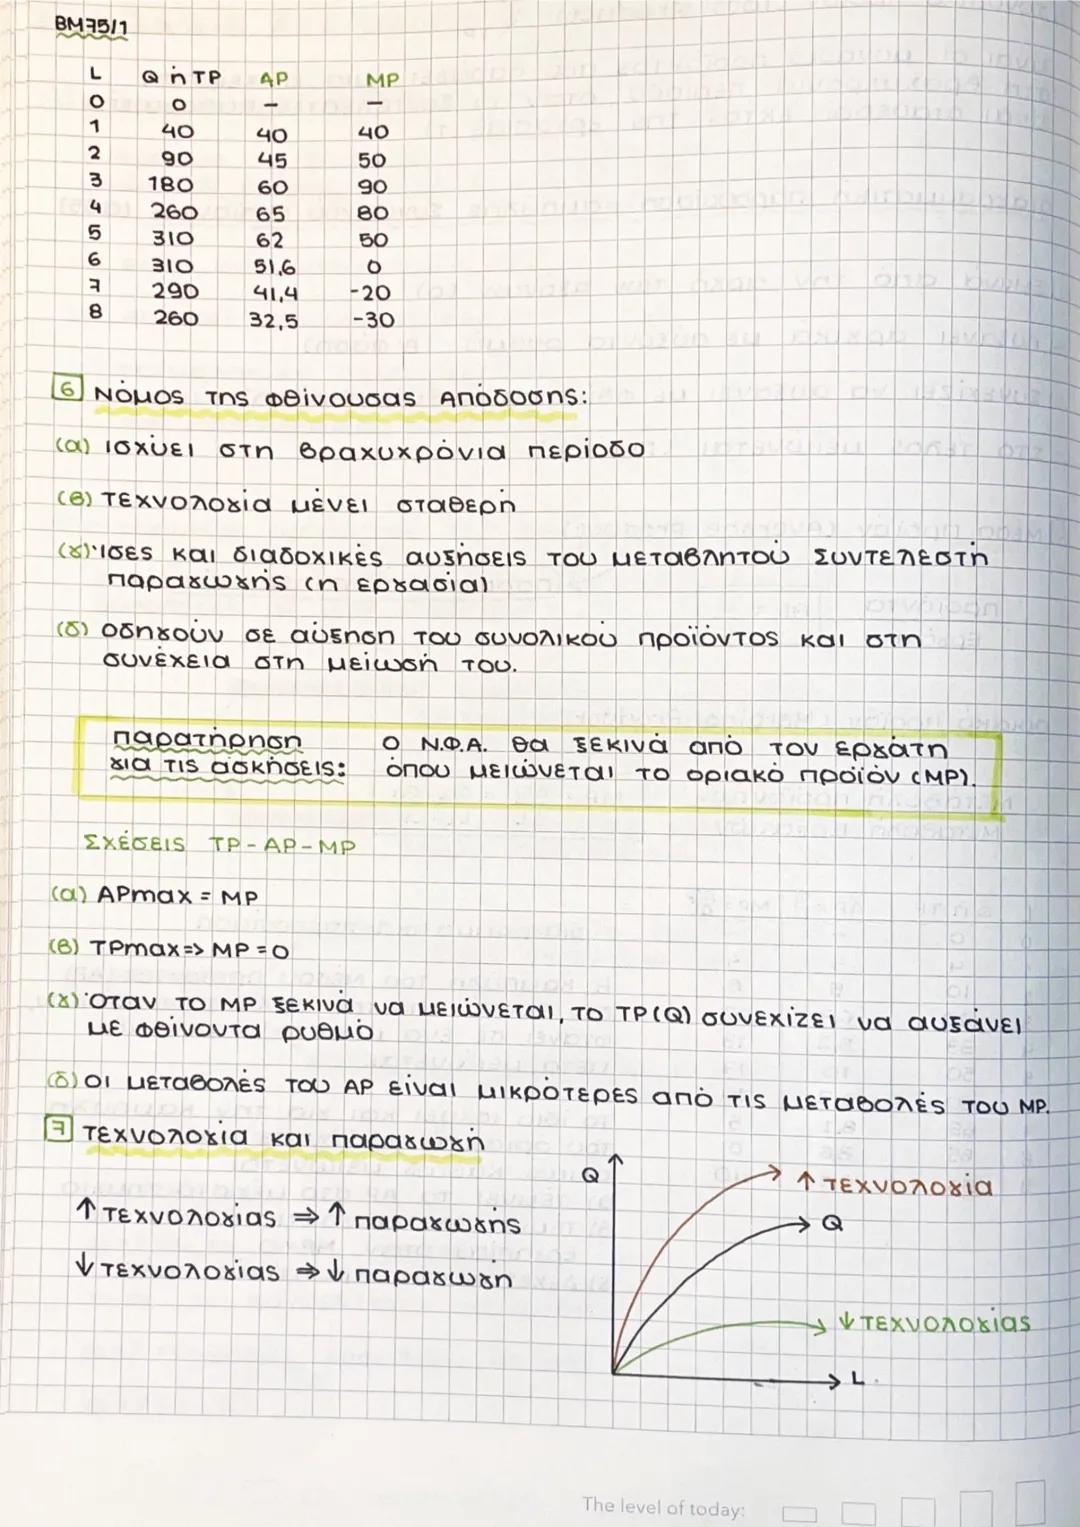 ΒΜ75/1
L Q ή TP AP MP
0 0 – –
1 40 40 40
2 90 45 50
3 180 60 90
4 260 65 80
5 310 62 50
6 310 51,6 0
7 290 41,4 -20
8 260 32,5 -30
6 Νόμος της Φθίνουσας Απόδοσης:
(α) ισχύει στη βραχυχρόνια περίοδο
(β) τεχνολογία μένει σταθερή
(γ) Ίσες και διαδοχικές αυξήσεις του μεταβλητού συντελεστή
παραγωγής (η εργασία)
(δ) οδηγούν σε αύξηση του συνολικού προϊόντος και στη
συνέχεια στη μείωσή του.
Παρατήρηση Ο Ν.Φ.Α. θα ξεκινά από τον εργάτη
για τις ασκήσεις: όπου μειώνεται το οριακό προϊόν (MP).
Σχέσεις TP-AP-MP
(α) APmax = MP
(β) TPmax => MP = 0
(γ) Όταν το MP ξεκινά να μειώνεται, το TP(Q) συνεχίζει να αυξάνει
με φθίνοντα ρυθμό
(δ) Οι μεταβολές του AP είναι μικρότερες από τις μεταβολές του MP.
7 Τεχνολογία και παραγωγή
↑ τεχνολογίας ⇒ ↑ παραγωγής
↓ τεχνολογίας ⇒ ↓ παραγωγή
Q
↑ τεχνολογία
Q
↓ τεχνολογίας
L
The level of today: